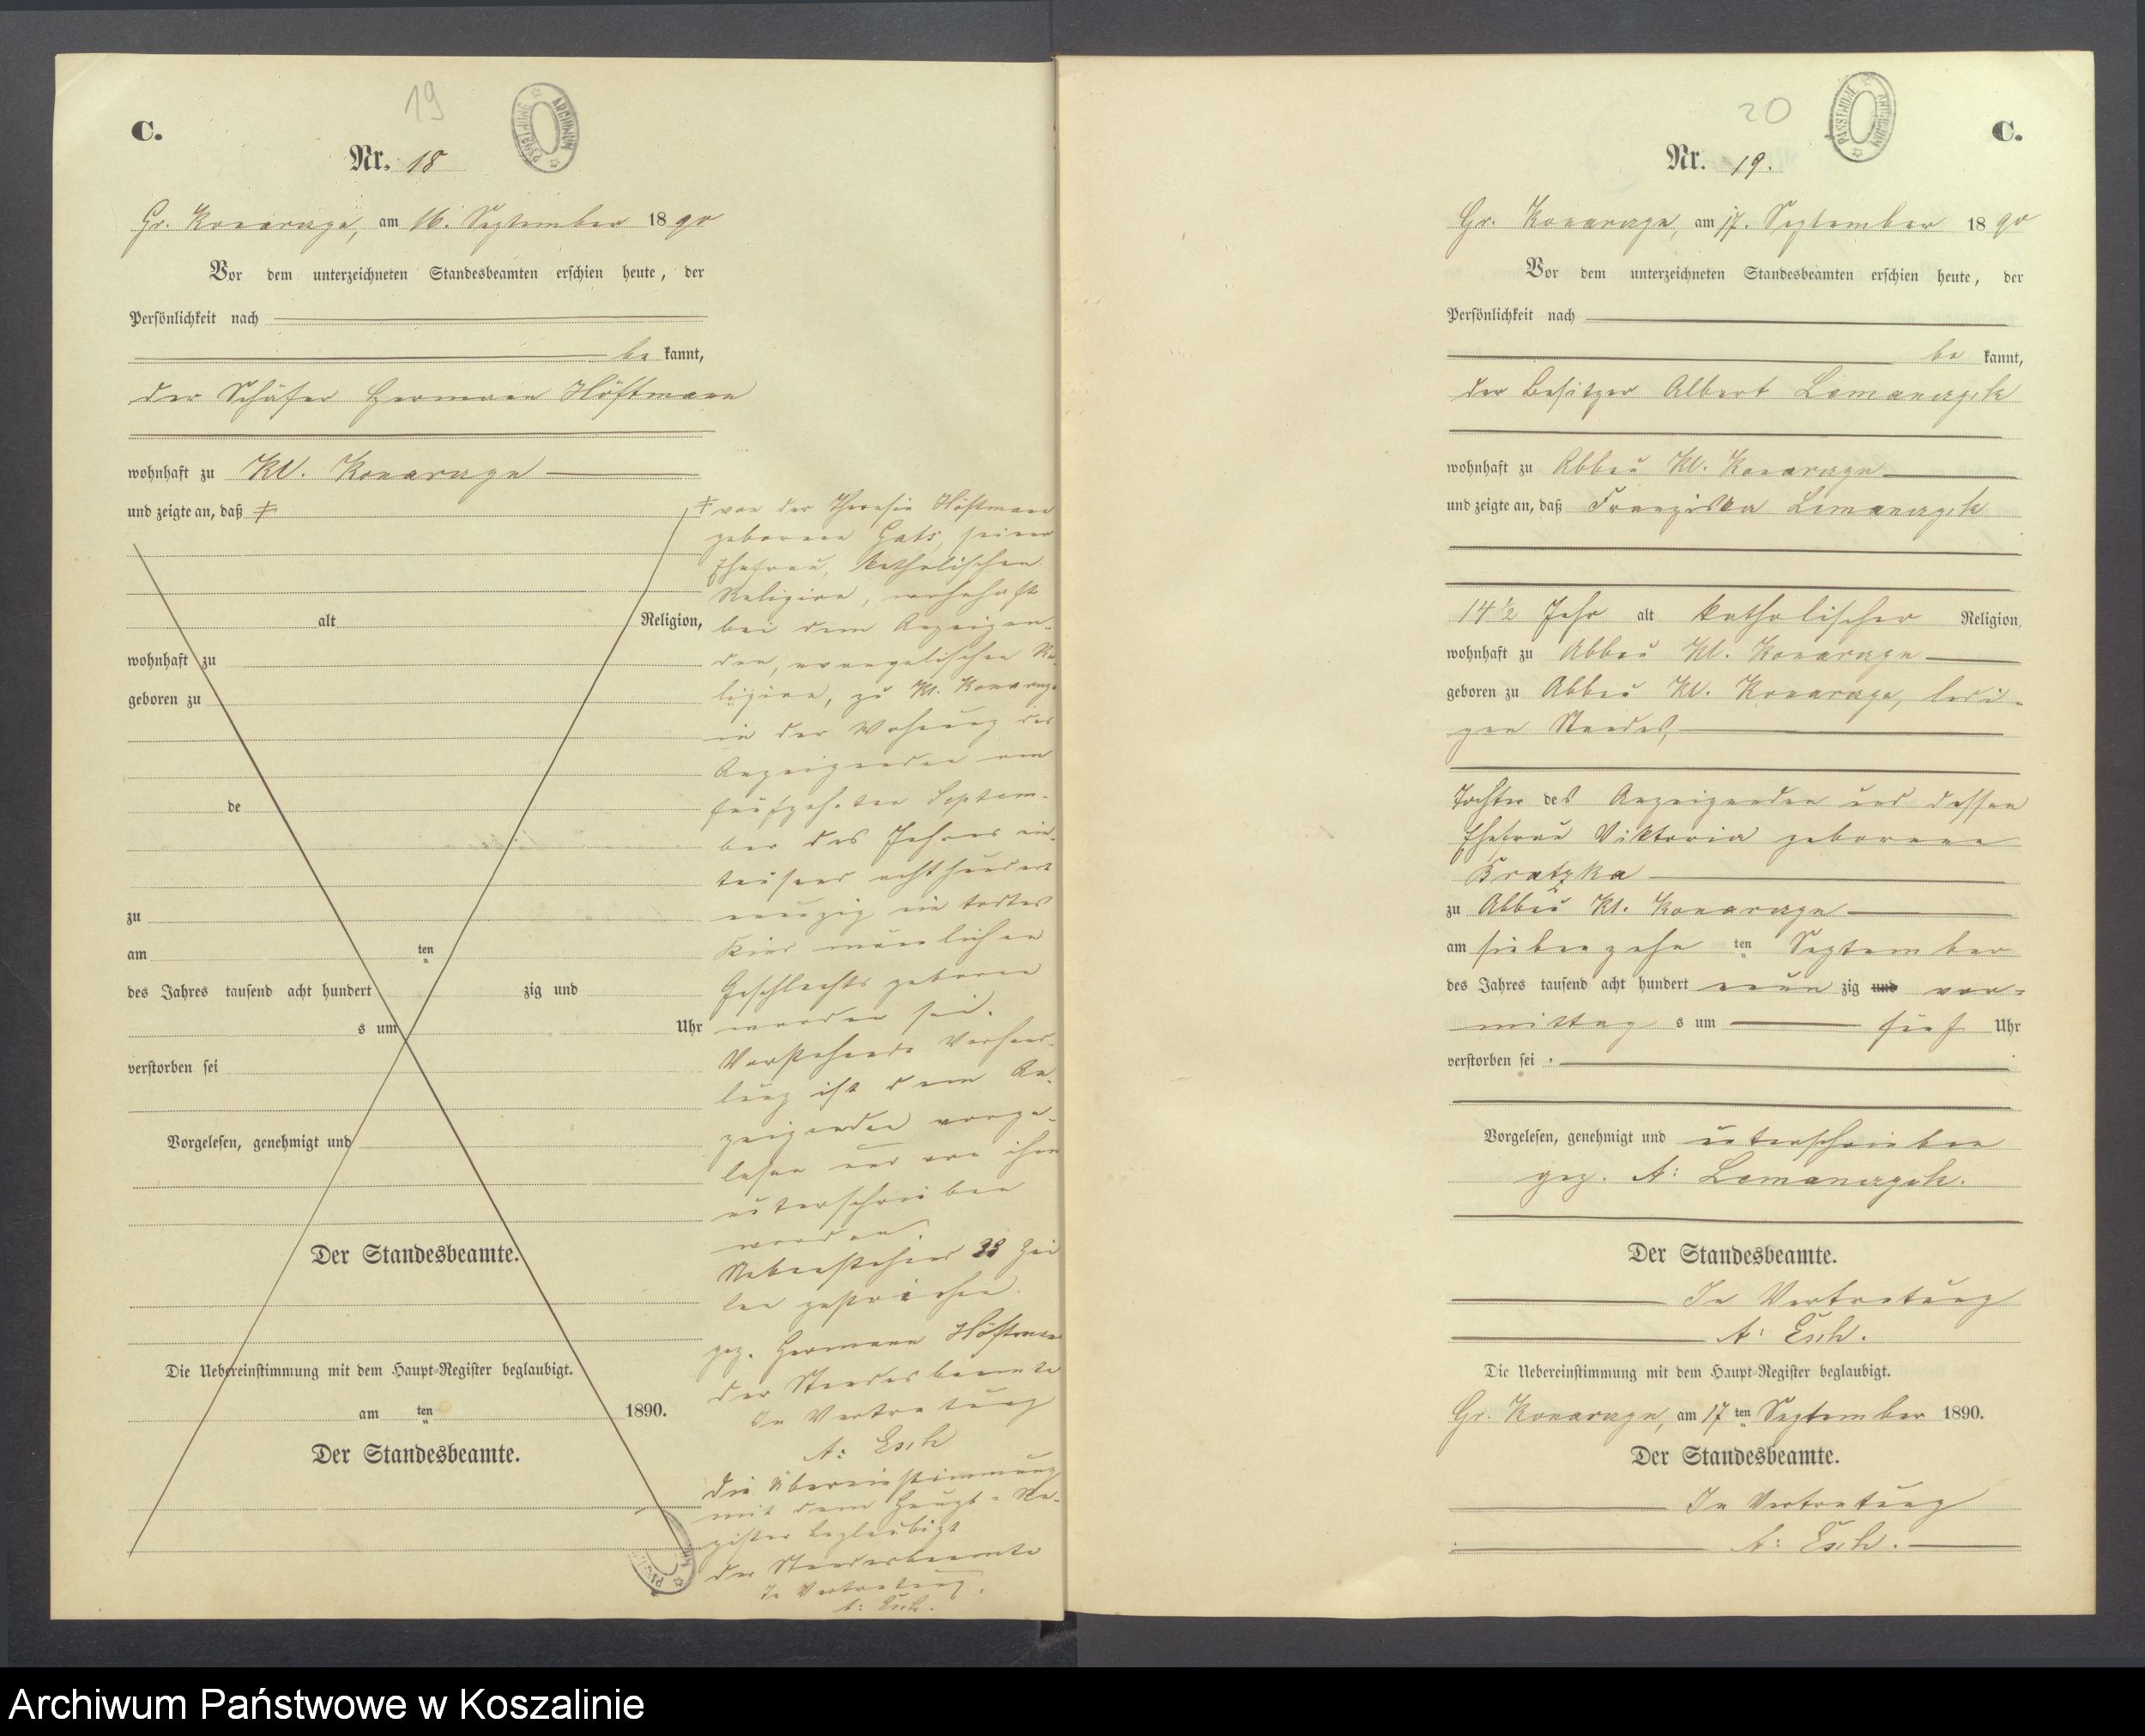 19
C.
Nr. 18
Gr. Konarczyn, am 16. September 1890
Vor dem unterzeichneten Standesbeamten erschien heute, der
Persönlichkeit nach
be kannt,
der Schäfer Hermann Höftmann
wohnhaft zu Kl. Konarczyn
und zeigte an, daß ‡
alt Religion,
wohnhaft zu
geboren zu
de
zu
am ten
des Jahres tausend acht hundert zig und
s um Uhr
verstorben sei
Vorgelesen, genehmigt und
Der Standesbeamte.
Die Uebereinstimmung mit dem Haupt-Register beglaubigt.
am ten 1890.
Der Standesbeamte.
‡ von der Theresia Höftmann
geborenen Gats, seiner
Ehefrau, katholischen
Religion, wohnhaft
bei dem Anzeigen-
den, evangelischer Re-
ligion, zu Kl. Konarczyn
in der Wohnung des
Anzeigenden am
fünfzehnten Septem-
ber des Jahres ein-
tausend achthundert
neunzig ein todtes
Kind männlichen
Geschlechts geboren
worden sei.
Vorstehende Verhand-
lung ist dem An-
zeigenden vorge-
lesen und von ihm
unterschrieben
worden.
Nebenstehend 23 Zei
len gestrichen.
gez. Hermann Höftmann
der Standesbeamte
In Vertretung
A: Esch
die Übereinstimmung
mit dem Haupt-Re-
gister beglaubigt
der Standesbeamte
In Vertretung.
A: Esch.
PAŃSTWOWE ARCHIWUM
20
C.
Nr. 19.
Gr. Konarczyn, am 17. September 1890
Vor dem unterzeichneten Standesbeamten erschien heute, der
Persönlichkeit nach
be kannt,
der Besitzer Albert Lemanczyk
wohnhaft zu Abbau Kl. Konarczyn
und zeigte an, daß Franziska Lemanczyk
14 1/2 Jahr alt katholischer Religion
wohnhaft zu Abbau Kl. Konarczyn
geboren zu Abbau Kl. Konarczyn, ledi-
gen Standes,
Tochter des Anzeigenden und dessen
Ehefrau Viktoria geborene
Bratzka
zu Abbau Kl. Konarczyn
am siebenzehn ten September
des Jahres tausend acht hundert neun zig und vor-
mittag s um fünf Uhr
verstorben sei.
Vorgelesen, genehmigt und unterschrieben
gez. A: Lemanczyk.
Der Standesbeamte.
In Vertretung
A: Esch.
Die Uebereinstimmung mit dem Haupt-Register beglaubigt.
Gr. Konarczyn, am 17ten September 1890.
Der Standesbeamte.
In Vertretung
A: Esch.
PAŃSTWOWE ARCHIWUM
Archiwum Państwowe w Koszalinie